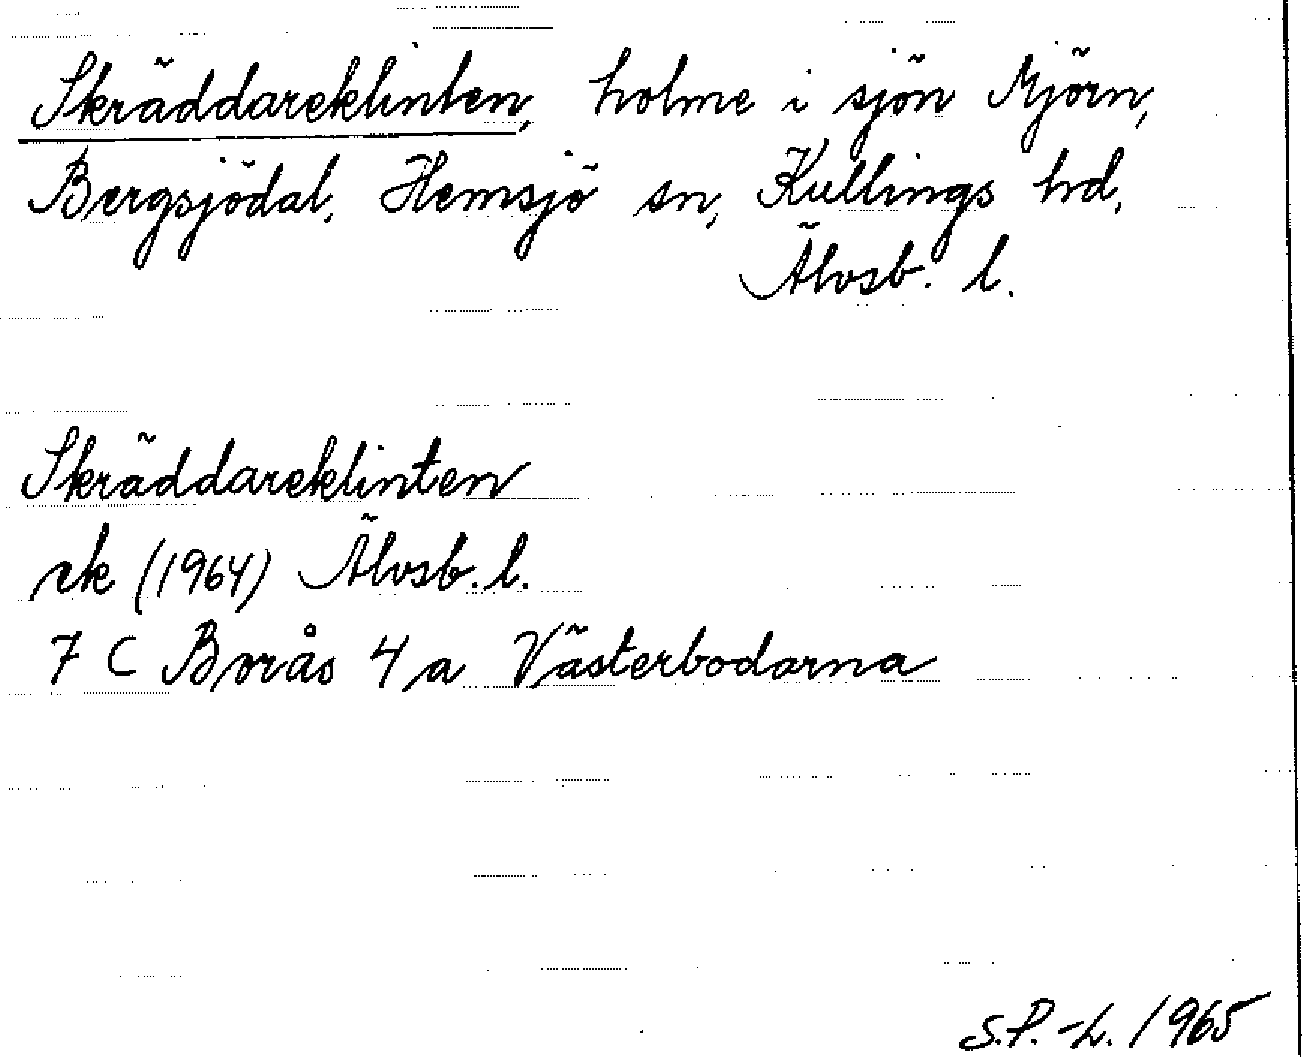 Skräddareklinten, holme i sjön Mjörn,
Bergsjödal, Hemsjö sn, Kullings hd,
Älvsb. l.
Skräddareklinten
ek (1964) Älvsb. l.
7 C Borås 4 a Västerbodarna
S.P.-L. 1965